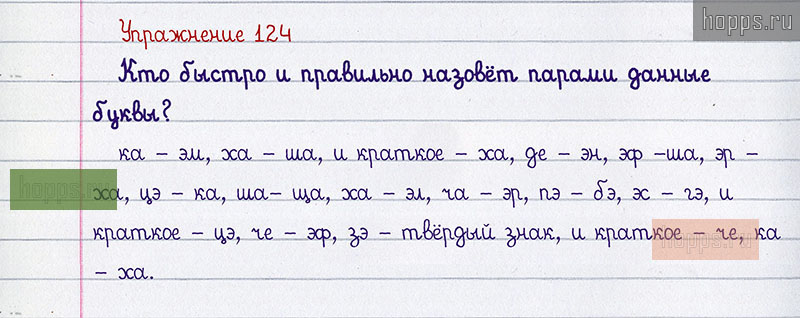 hopps.ru
Упражнение 124
Кто быстро и правильно назовёт парами данные
буквы?
ка – эм, ха – ша, и краткое – ха, де – эн, эф –ша, эр –
ха, цэ – ка, ша– ща, ха – эл, ча – эр, пэ – бэ, эс – гэ, и
краткое – цэ, че – эф, зэ – твёрдый знак, и краткое – че, ка
– ха.